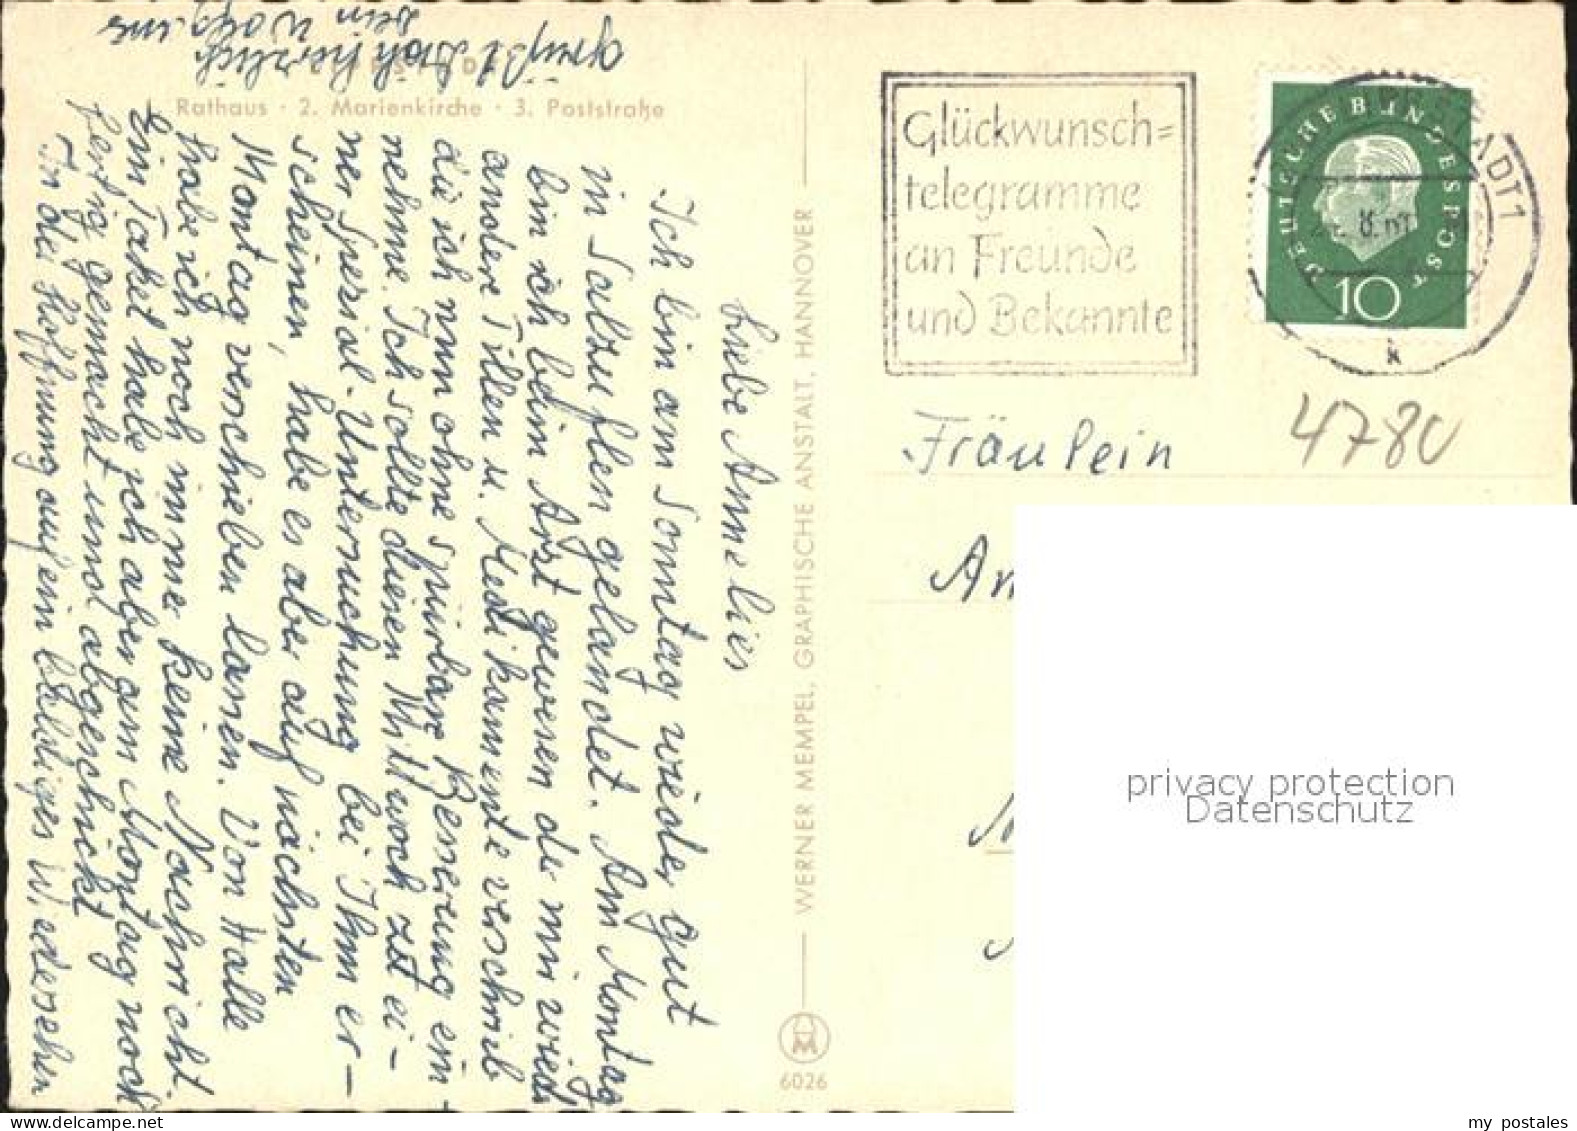 LIPPSTADT
Rathaus · 2. Marienkirche · 3. Poststraße
Liebe Annelies
Ich bin am Sonntag wieder gut
in Salzuflen gelandet. Am Montag
bin ich beim Arzt gewesen der mir wieder
andere Pillen u. Medikamente verschrieb
die ich nun ohne spürbare Besserung ein-
nehme. Ich sollte diesen Mittwoch zst ei-
ner Spezial-Untersuchung bei Ihm er-
scheinen, habe es aber auf nächsten
Montag verschieben lassen. Von Halle
habe ich noch immer keine Nachricht.
Ein Paket habe ich aber am Montag noch
fertig gemacht und abgeschickt
In der Hoffnung auf ein baldiges Wiedersehen
grüßt Dich herzlich
Dein Wolfgang
WERNER MEMPEL, GRAPHISCHE ANSTALT, HANNOVER
6026
Glückwunsch=
telegramme
an Freunde
und Bekannte
DEUTSCHE BUNDESPOST
10
k
Fräulein
4780
An
privacy protection
Datenschutz
my postales
www.delcampe.net